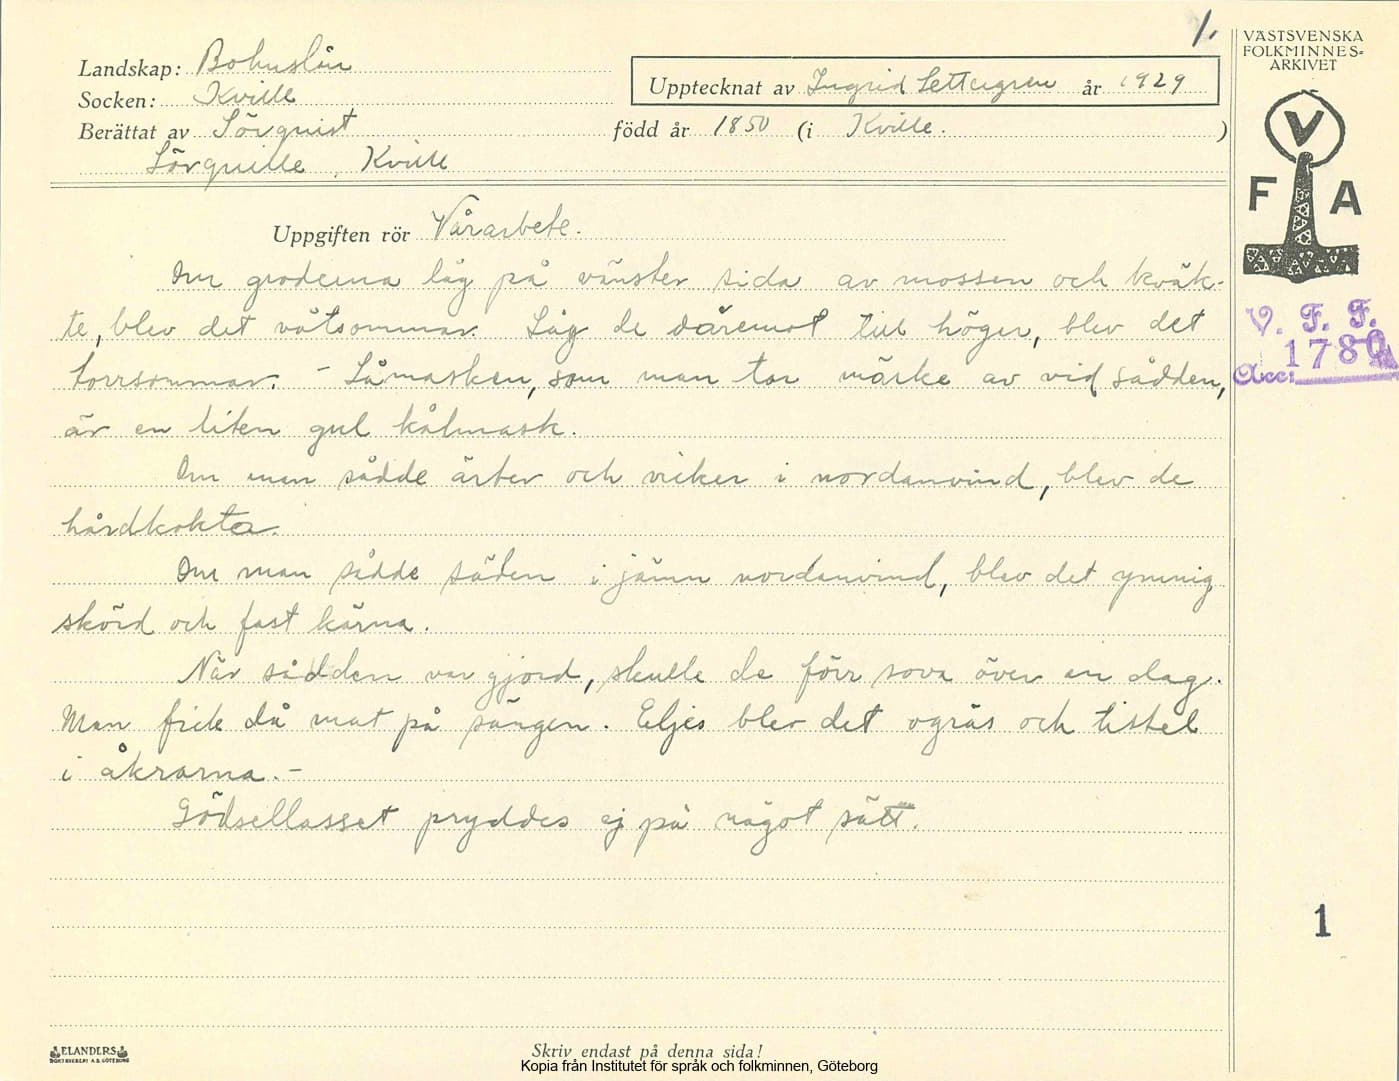 1.
VÄSTSVENSKA
FOLKMINNES=
ARKIVET
V
F A
Landskap: Bohuslän
Upptecknat av Ingrid Settergren år 1929
Socken: Kville
Berättat av Sörquist född år 1850 (i Kville. )
Sörquille, Kville
Uppgiften rör Vårarbete.
Om grodorna låg på vänster sida av mossen och kväk-
te, blev det våtsommar. Låg de däremot till höger, blev det
torrsommar. – Såmasken, som man tar märke av vid sådden,
är en liten gul kålmask.
Om man sådde ärter och vicker i nordanvind, blev de
hårdkokta.
Om man sådde säden i jämn nordanvind, blev det ymnig
skörd och fast kärna.
När sådden var gjord, skulle de förr sova över en dag.
Man fick då mat på sängen. Eljes blev det ogräs och tistel
i åkrarna. –
Gödsellasset pryddes ej på något sätt.
V. F. F.
Acc: 1780
1
ELANDERS
BOKTRYCKERI A.B. GÖTEBORG
Skriv endast på denna sida!
Kopia från Institutet för språk och folkminnen, Göteborg